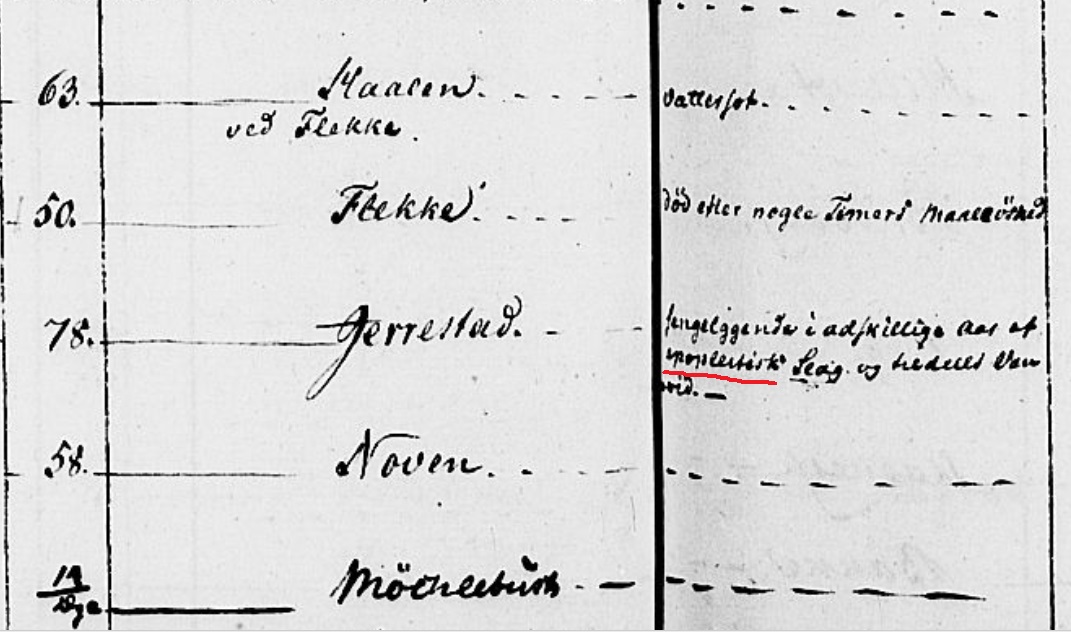 63. Haalen.
ved Flekke.
Vattersot.
50. Flekke.
död efter nogle Timers Maallöshed
78. Gerrestad.
sengeliggende i adskillige Aar af
apoplectisk Slag og tredelt Van
vid.
58. Noven.
19
Dge